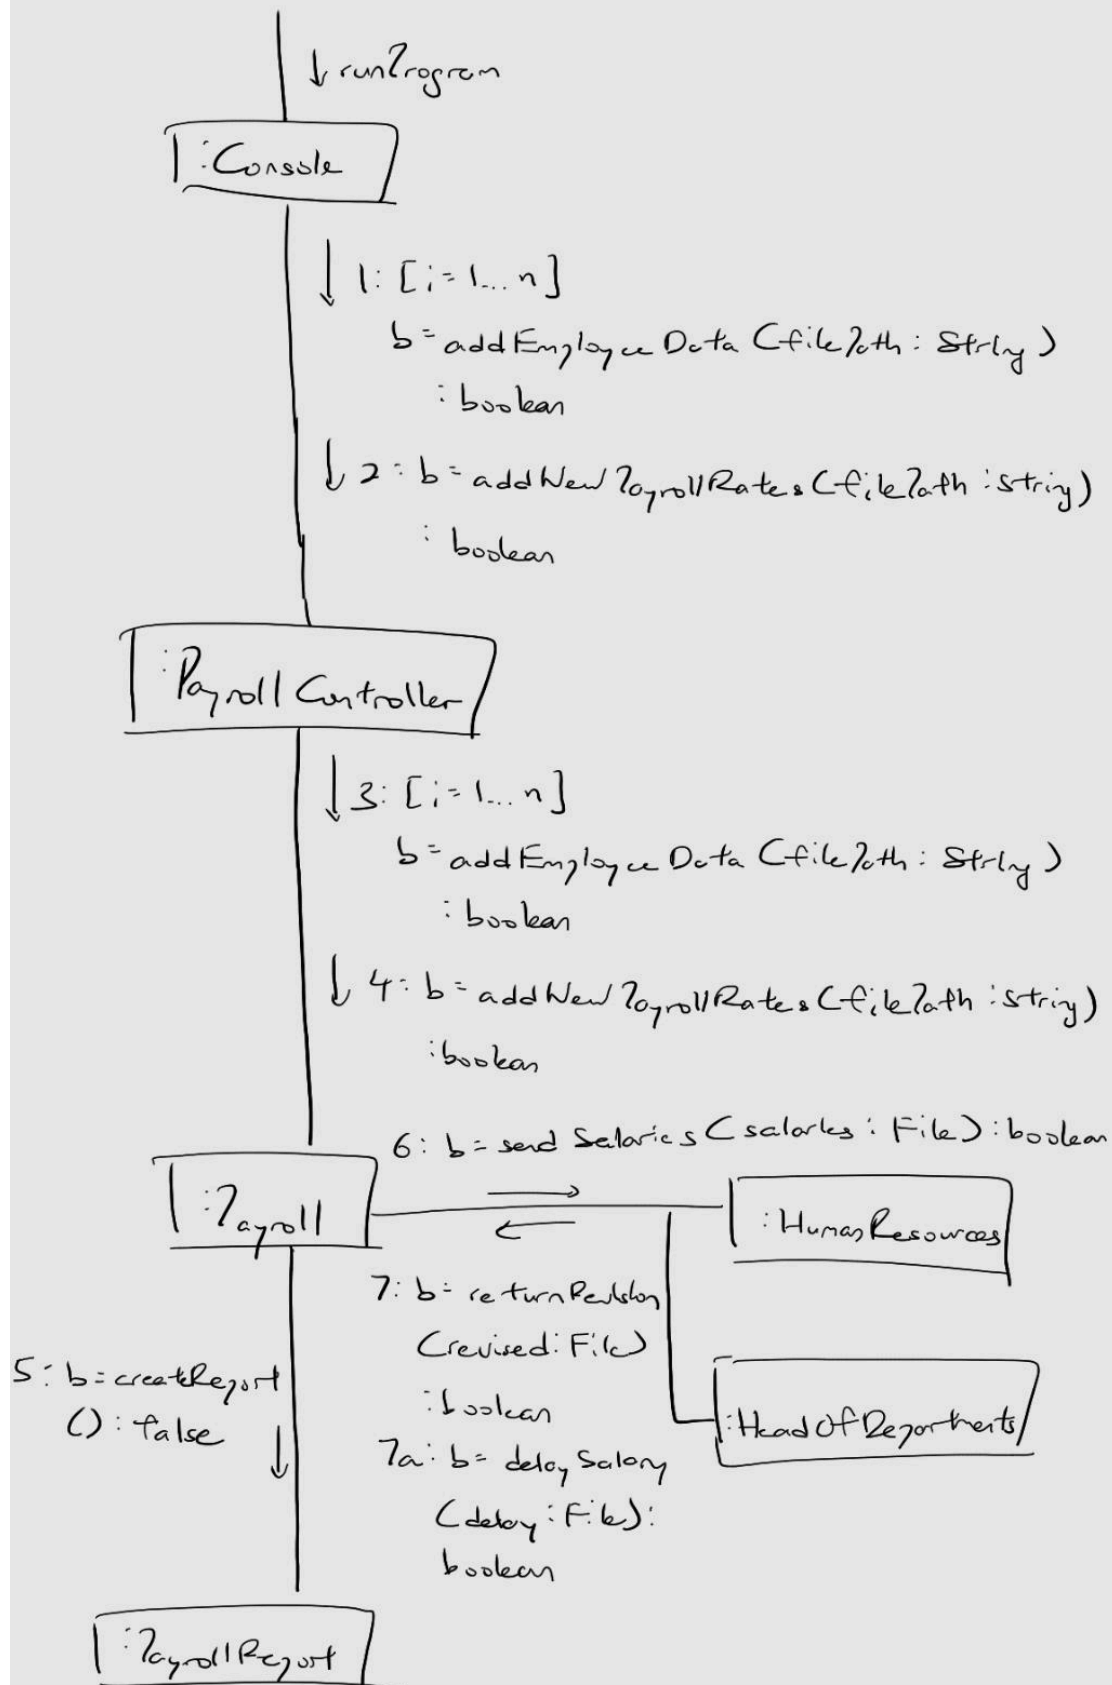 runProgram
:Console
1: [i=1...n]
b=addEmployeeData(filePath: String)
:boolean
2: b=addNewPayrollRates(filePath:string)
: boolean
:PayrollController
3: [i=1...n]
b=addEmployeeData(filePath: String)
:boolean
4: b=addNewPayrollRates(filePath:string)
:boolean
6: b=send Salaries(salaries: File):boolean
:Payroll
:HumanResources
7: b=returnRevision
(revised:File)
:boolean
5: b=createReport
(): false
:HeadOfDepartments
7a: b= delaySalary
(delay:File):
boolean
:PayrollReport